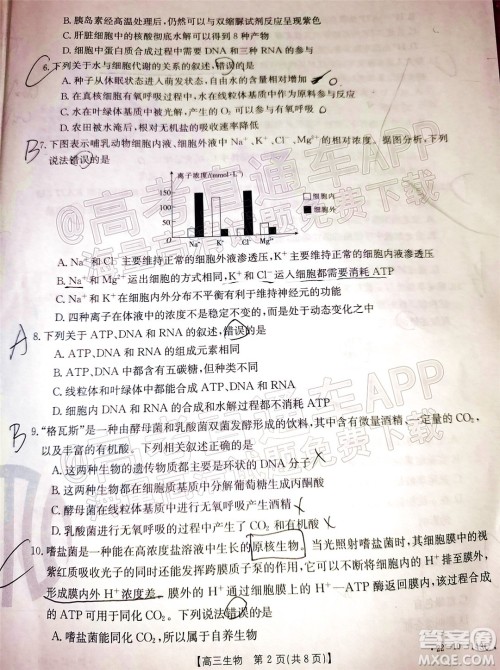 B. 胰岛素经高温处理后,仍然可以与双缩脲试剂反应呈现紫色
C. 肝脏细胞中的核酸彻底水解可以得到8种产物
D. 细胞中蛋白质合成过程中需要DNA和三种RNA的参与
C 6. 下列关于水与细胞代谢的关系的叙述,错误的是
A. 种子从休眠状态进入萌发状态,自由水的含量相对增加
B. 在真核细胞有氧呼吸过程中,水在线粒体基质中作为原料参与反应
C. 水在叶绿体基质中被光解,产生的O₂可以参与有氧呼吸
D. 农田被水淹后,根对无机盐的吸收速率降低
B 7. 下图表示哺乳动物细胞内液、细胞外液中Na⁺、K⁺、Cl⁻、Mg²⁺的相对浓度。据图分析,下列
说法错误的是
离子浓度/(mmol·L⁻¹)
200
150
100
50
0
Na⁺ K⁺ Cl⁻ Mg²⁺
细胞内
细胞外
A. Na⁺和Cl⁻主要维持正常的细胞外液渗透压,K⁺主要维持正常的细胞内液渗透压
B. Na⁺和Mg²⁺运出细胞的方式相同,K⁺和Cl⁻运入细胞都需要消耗ATP
C. K⁺在细胞内外分布不平衡有利于维持神经元的兴奋性
D. 四种离子在体液中的浓度不是固定不变的,而是处于动态变化之中
A 8. 下列关于ATP、DNA和RNA的叙述,错误的是
A. ATP、DNA和RNA的组成元素相同
B. ATP、DNA和RNA中都含有五碳糖,但种类不同
C. 在线粒体和叶绿体中都能合成ATP、DNA和RNA
D. ATP、DNA和RNA的合成和水解过程都不消耗ATP
B 9. “格瓦斯”是一种由酵母菌和乳酸菌双菌发酵形成的饮料,其中含有微量酒精、一定量的CO₂,
以及丰富的有机酸。下列相关叙述正确的是
A. 这两种生物的遗传物质都是裸露的环状的DNA分子
B. 这两种生物都能在细胞质基质中分解葡萄糖生成丙酮酸
C. 两种生物都在细胞质基质中进行无氧呼吸产生酒精
D. 乳酸菌进行无氧呼吸的过程中产生了CO₂和有机酸
C 10. 嗜盐菌是一种能在高浓度盐溶液中生长的原核生物。当光照射嗜盐菌时,其细胞膜中的视
紫红质吸收光子的同时还能发挥跨膜质子泵的作用,可以将细胞内的H⁺移至膜外,
形成膜内外H⁺浓度差。膜外的H⁺通过细胞膜上的H⁺/ATP酶返回膜内,该过程合成
的ATP可用于同化CO₂。下列说法错误的是
A. 嗜盐菌能同化CO₂,所以属于自养生物
【高三生物 第2页(共8页)】
@高考直通车APP
海量高清试题免费下载
@高考直通车APP
海量高清试题免费下载
答案圈
MXQE.COM